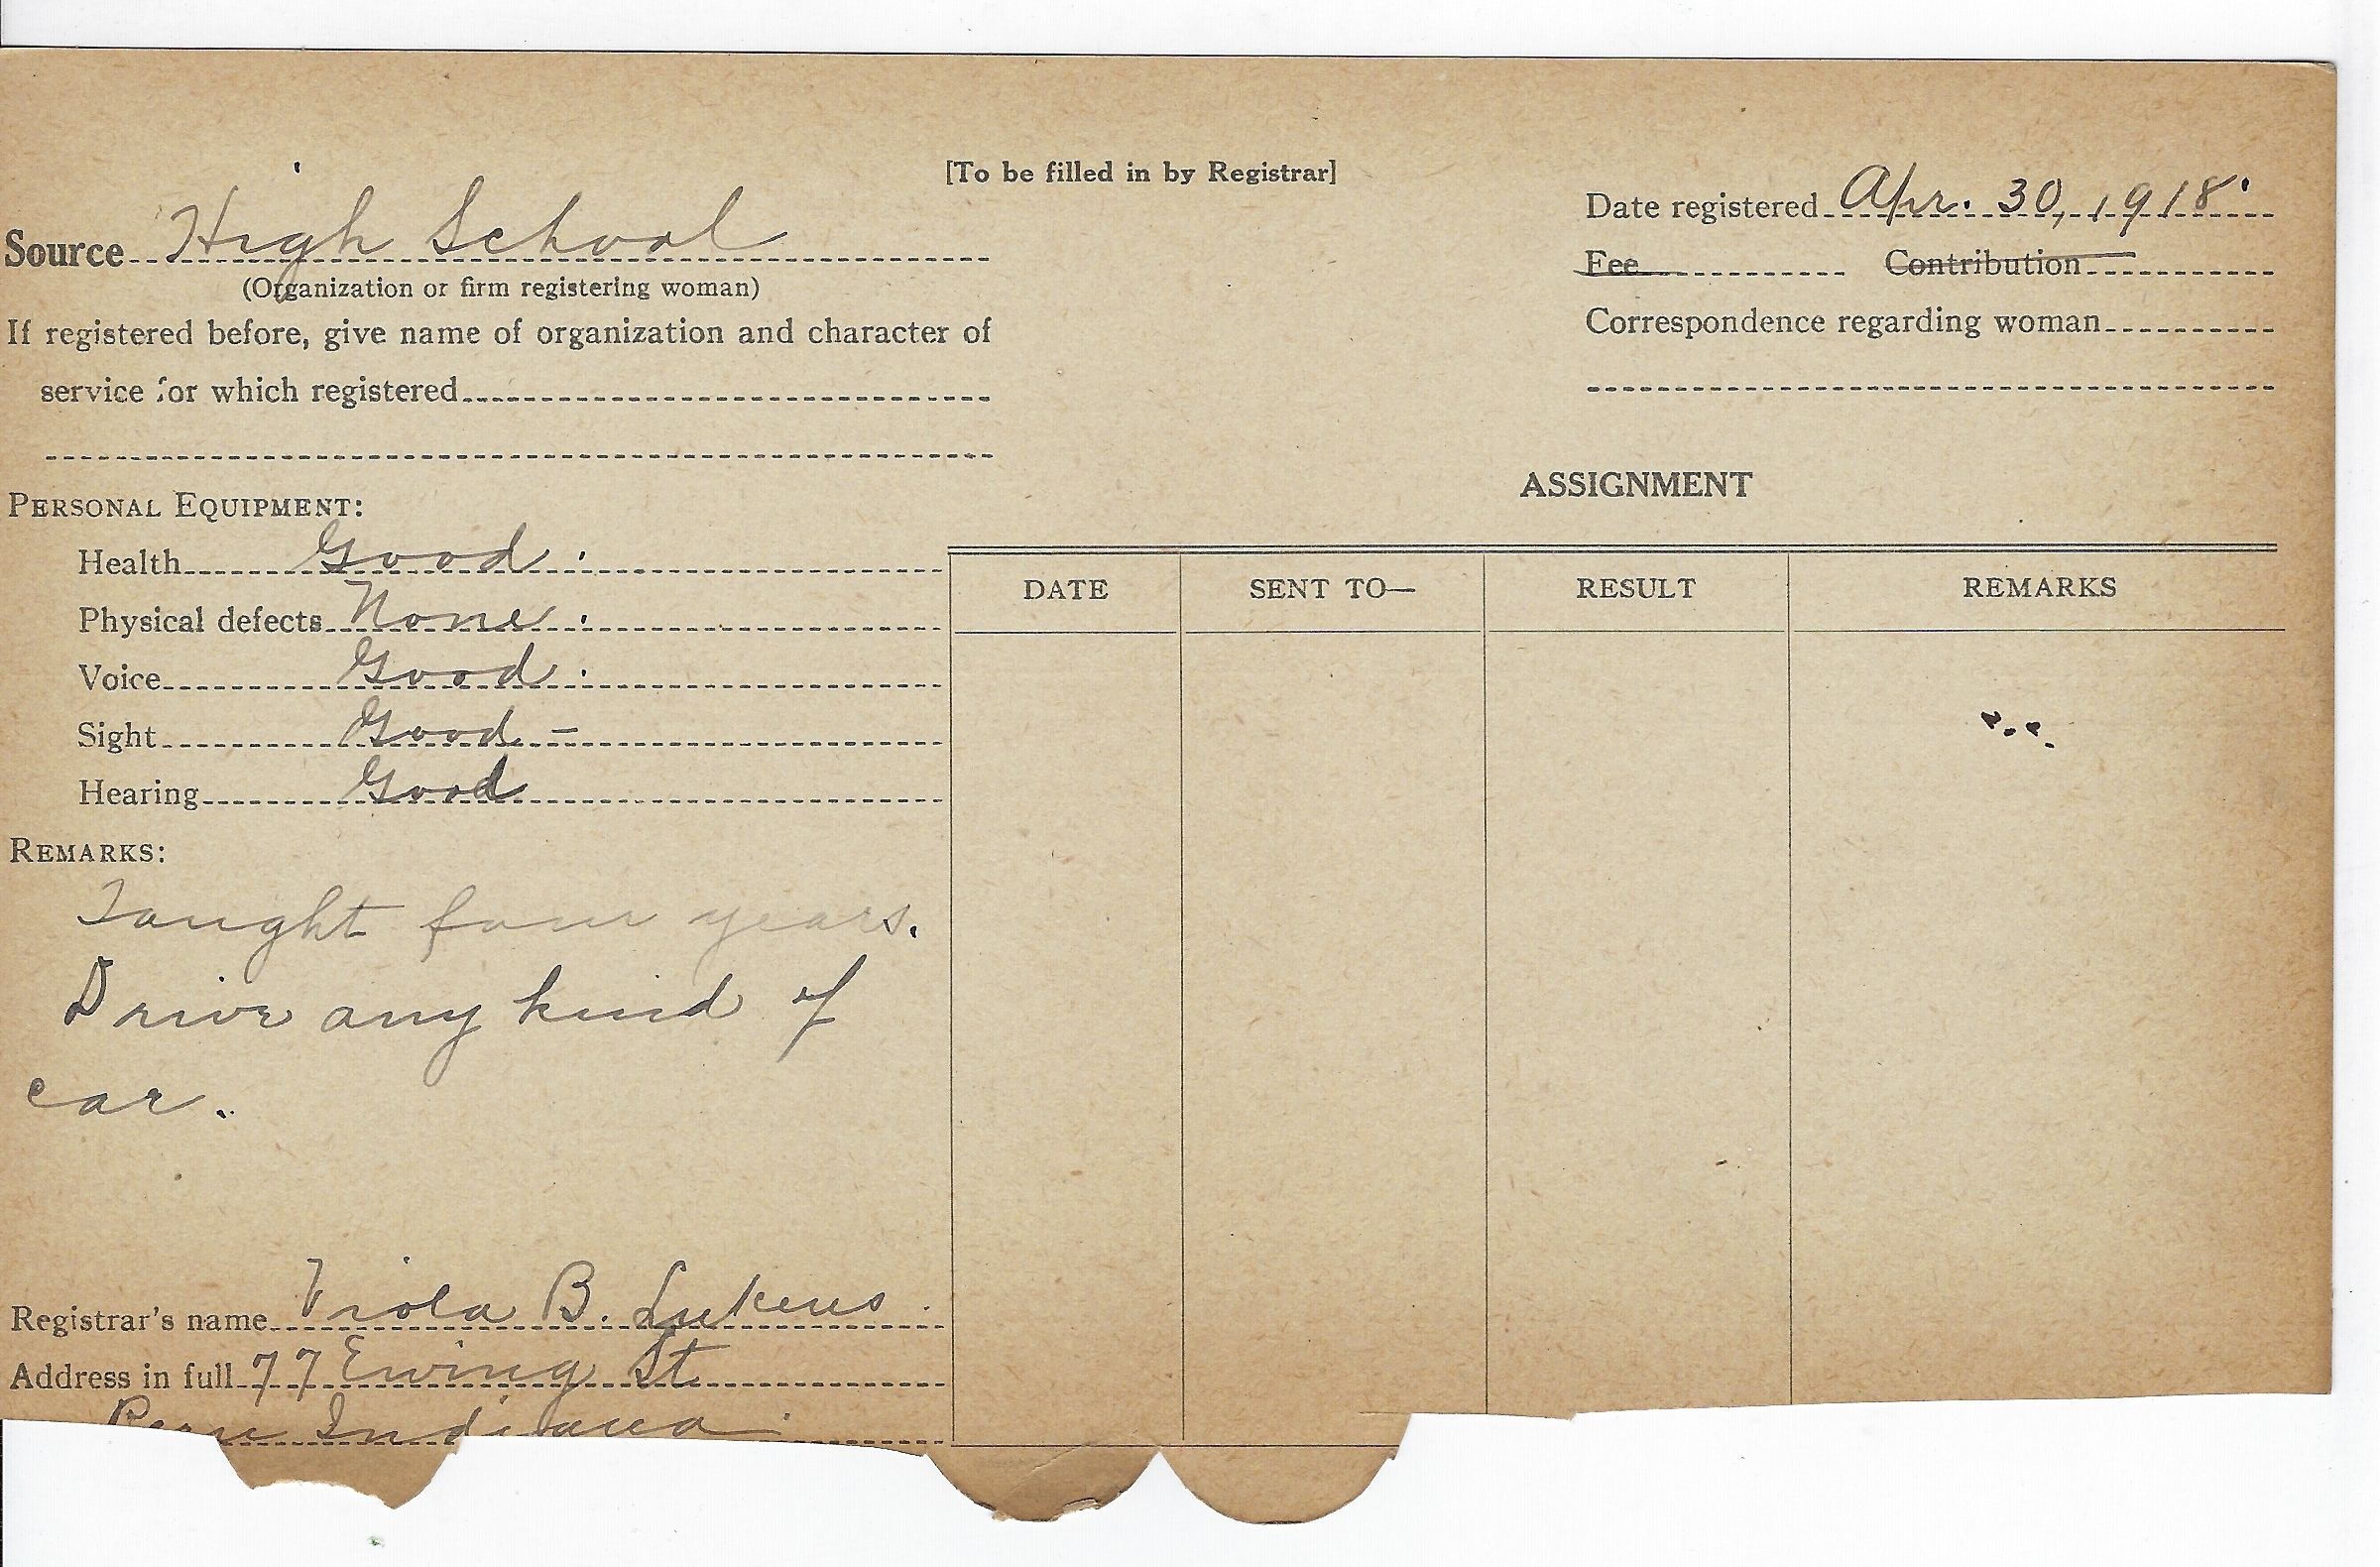 [To be filled in by Registrar]
Source High School
(Organization or firm registering woman)
If registered before, give name of organization and character of
service for which registered
Date registered Apr. 30, 1918
Fee Contribution
Correspondence regarding woman
PERSONAL EQUIPMENT:
Health Good
Physical defects None
Voice Good
Sight Good
Hearing Good
REMARKS:
Taught four years.
Drive any kind of
car.
Registrar's name Viola B. Lukens
Address in full 77 Ewing St
Peru Indiana
ASSIGNMENT
DATE SENT TO— RESULT REMARKS